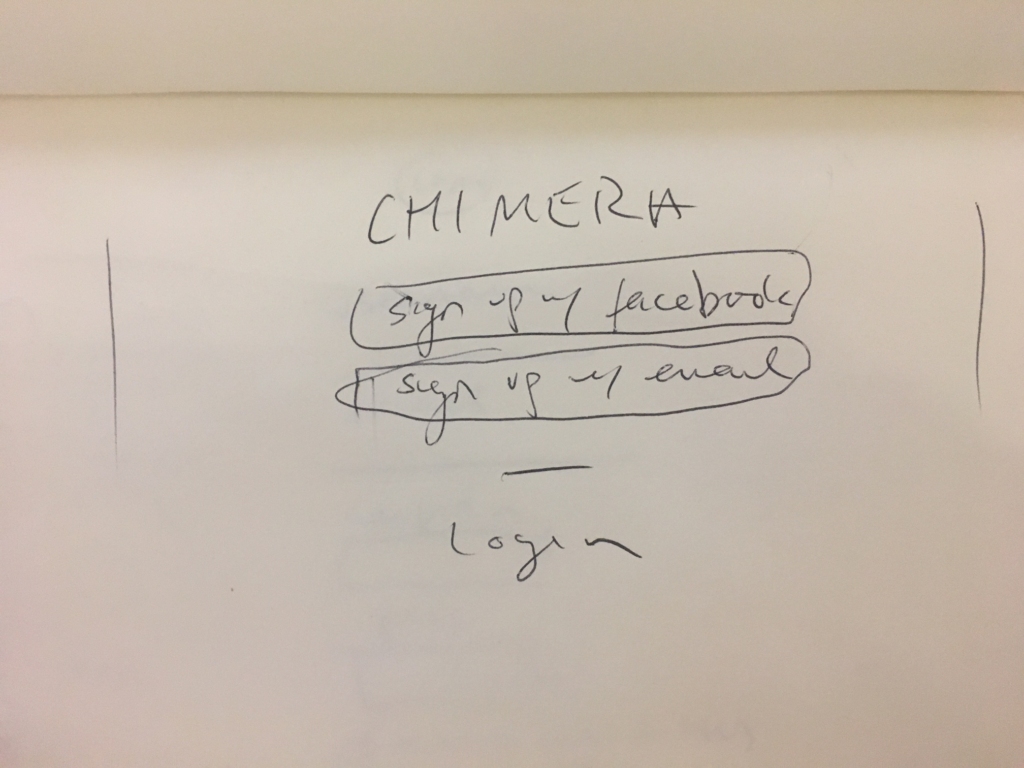 CHIMERA
sign up w/ facebook
sign up w/ email
Login